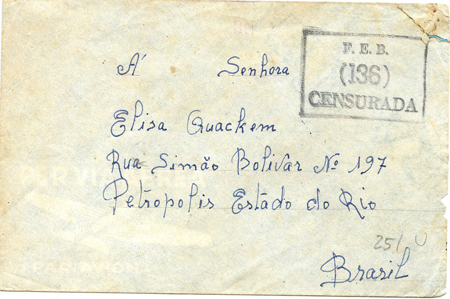 F. E. B.
(136)
CENSURADA
A' Senhora
Elisa Quackem
Rua Simão Bolivar Nº 197
Petropolis Estado do Rio
Brasil